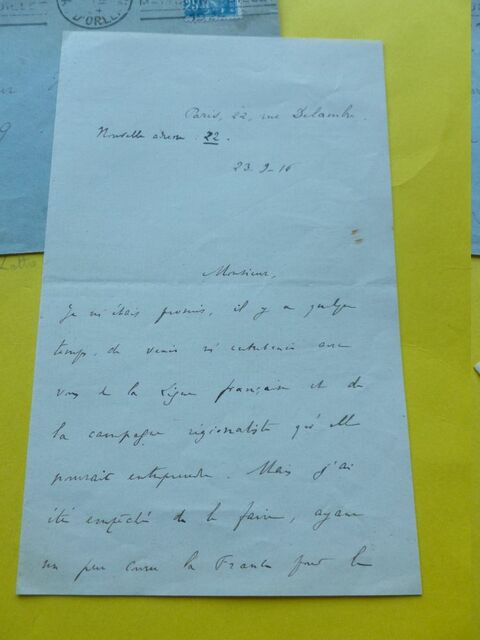 D'ORLE
Paris, 22, rue Delambre.
Nouvelle adresse : 22.
23-9-16
Monsieur,
Je m'étais promis, il y a quelque
temps, de venir m'entretenir avec
vous de la Ligue française et de
la campagne régionaliste qu'elle
pourrait entreprendre. Mais j'ai
été empêché de le faire, ayant
un peu couru la France pour le